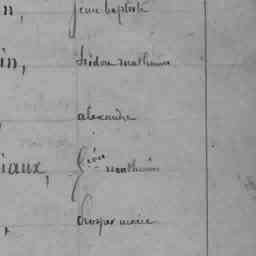 n, jean baptiste
in, isidore mathurin
alexandre
iaux, mathurin
prosper marie